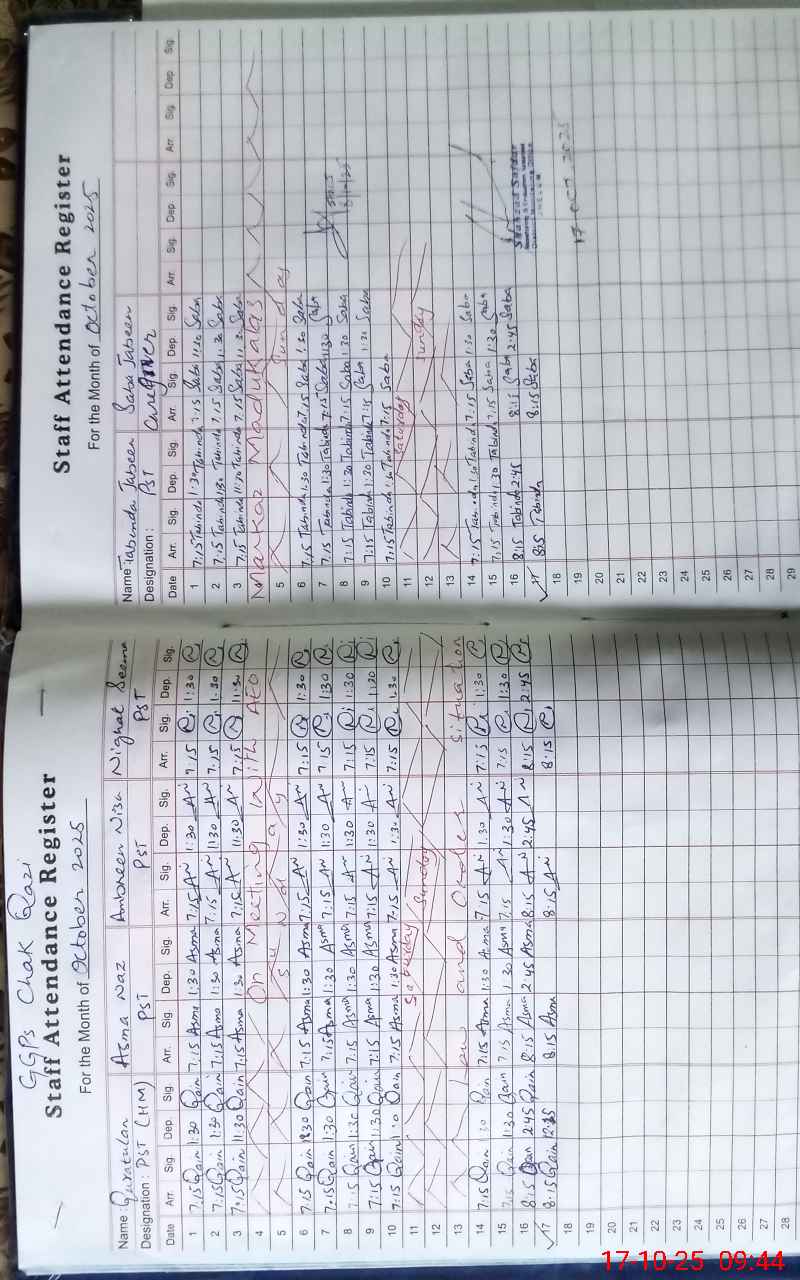 GGPS Chak Qazi
Staff Attendance Register
For the Month of October 2025
Name: Quratulan Asma Naz Ambreen Nisa Nighat Seema
Designation: PST (HM) PST PST PST
Date Arr. Sig. Dep. Sig. Arr. Sig. Dep. Sig. Arr. Sig. Dep. Sig. Arr. Sig. Dep. Sig.
1 7:15 Qain 1:30 Qain 7:15 Asma 1:30 Asma 7:15 AN 1:30 AN 7:15 1:30
2 7:15 Qain 1:30 Qain 7:15 Asma 1:30 Asma 7:15 AN 1:30 AN 7:15 1:30
3 7:15 Qain 11:30 Qain 7:15 Asma 11:30 Asma 7:15 AN 11:30 AN 7:15 11:30
4 On Meeting With AEO
5 Sunday
6 7:15 Qain 1:30 Qain 7:15 Asma 1:30 Asma 7:15 AN 1:30 AN 7:15 1:30
7 7:15 Qain 1:30 Qain 7:15 Asma 1:30 Asma 7:15 AN 1:30 AN 7:15 1:30
8 7:15 Qain 1:30 Qain 7:15 Asma 1:30 Asma 7:15 AN 1:30 AN 7:15 1:30
9 7:15 Qain 1:30 Qain 7:15 Asma 1:30 Asma 7:15 AN 1:30 AN 7:15 1:30
10 7:15 Qain Qain 7:15 Asma 1:30 Asma 7:15 AN 1:30 AN 7:15 1:30
11 Saturday
12 Sunday
13 Law and Order situation
14 7:15 Qain Qain 7:15 Asma 1:30 Asma 7:15 AN 1:30 AN 7:15 1:30
15 7:15 Qain 1:30 Qain 7:15 Asma 1:30 Asma 7:15 AN 1:30 AN 7:15 1:30
16 8:15 Qain 2:45 Qain 8:15 Asma 2:45 Asma 8:15 AN 2:45 AN 8:15 2:45
17 8:15 Qain 8:15 Asma 8:15 AN 8:15
18
19
20
21
22
23
24
25
26
27
28
Staff Attendance Register
For the Month of October 2025
Name Tabinda Jabeen Saba Jabeen
Designation: PST Caregiver
Date Arr. Sig. Dep. Sig. Arr. Sig. Dep. Sig. Arr. Sig. Dep. Sig. Arr. Sig. Dep. Sig.
1 7:15 Tabinda 1:30 Tabinda 7:15 Saba 1:30 Saba
2 7:15 Tabinda 1:30 Tabinda 7:15 Saba 1:30 Saba
3 7:15 Tabinda 11:30 Tabinda 7:15 Saba 11:30 Saba
4 Markaz Madukalas
5 Sunday
6 7:15 Tabinda 1:30 Tabinda 7:15 Saba 1:30 Saba
7 7:15 Tabinda 1:30 Tabinda 7:15 Saba 1:30 Saba
8 7:15 Tabinda 1:30 Tabinda 7:15 Saba 1:30 Saba
9 7:15 Tabinda 1:30 Tabinda 7:15 Saba 1:30 Saba
10 7:15 Tabinda 1:30 Tabinda 7:15 Saba
11 Saturday
12 Sunday
13
14 7:15 Tabinda 1:30 Tabinda 7:15 Saba 1:30 Saba
15 7:15 Tabinda 1:30 Tabinda 7:15 Saba 1:30 Saba
16 8:15 Tabinda 2:45 8:15 Saba 2:45 Saba
17 8:15 Tabinda 8:15 Saba
18
19
20
21
22
23
24
25
26
27
28
29
Shahzad Safdar
17 OCT 2025
17-10-25 09:44